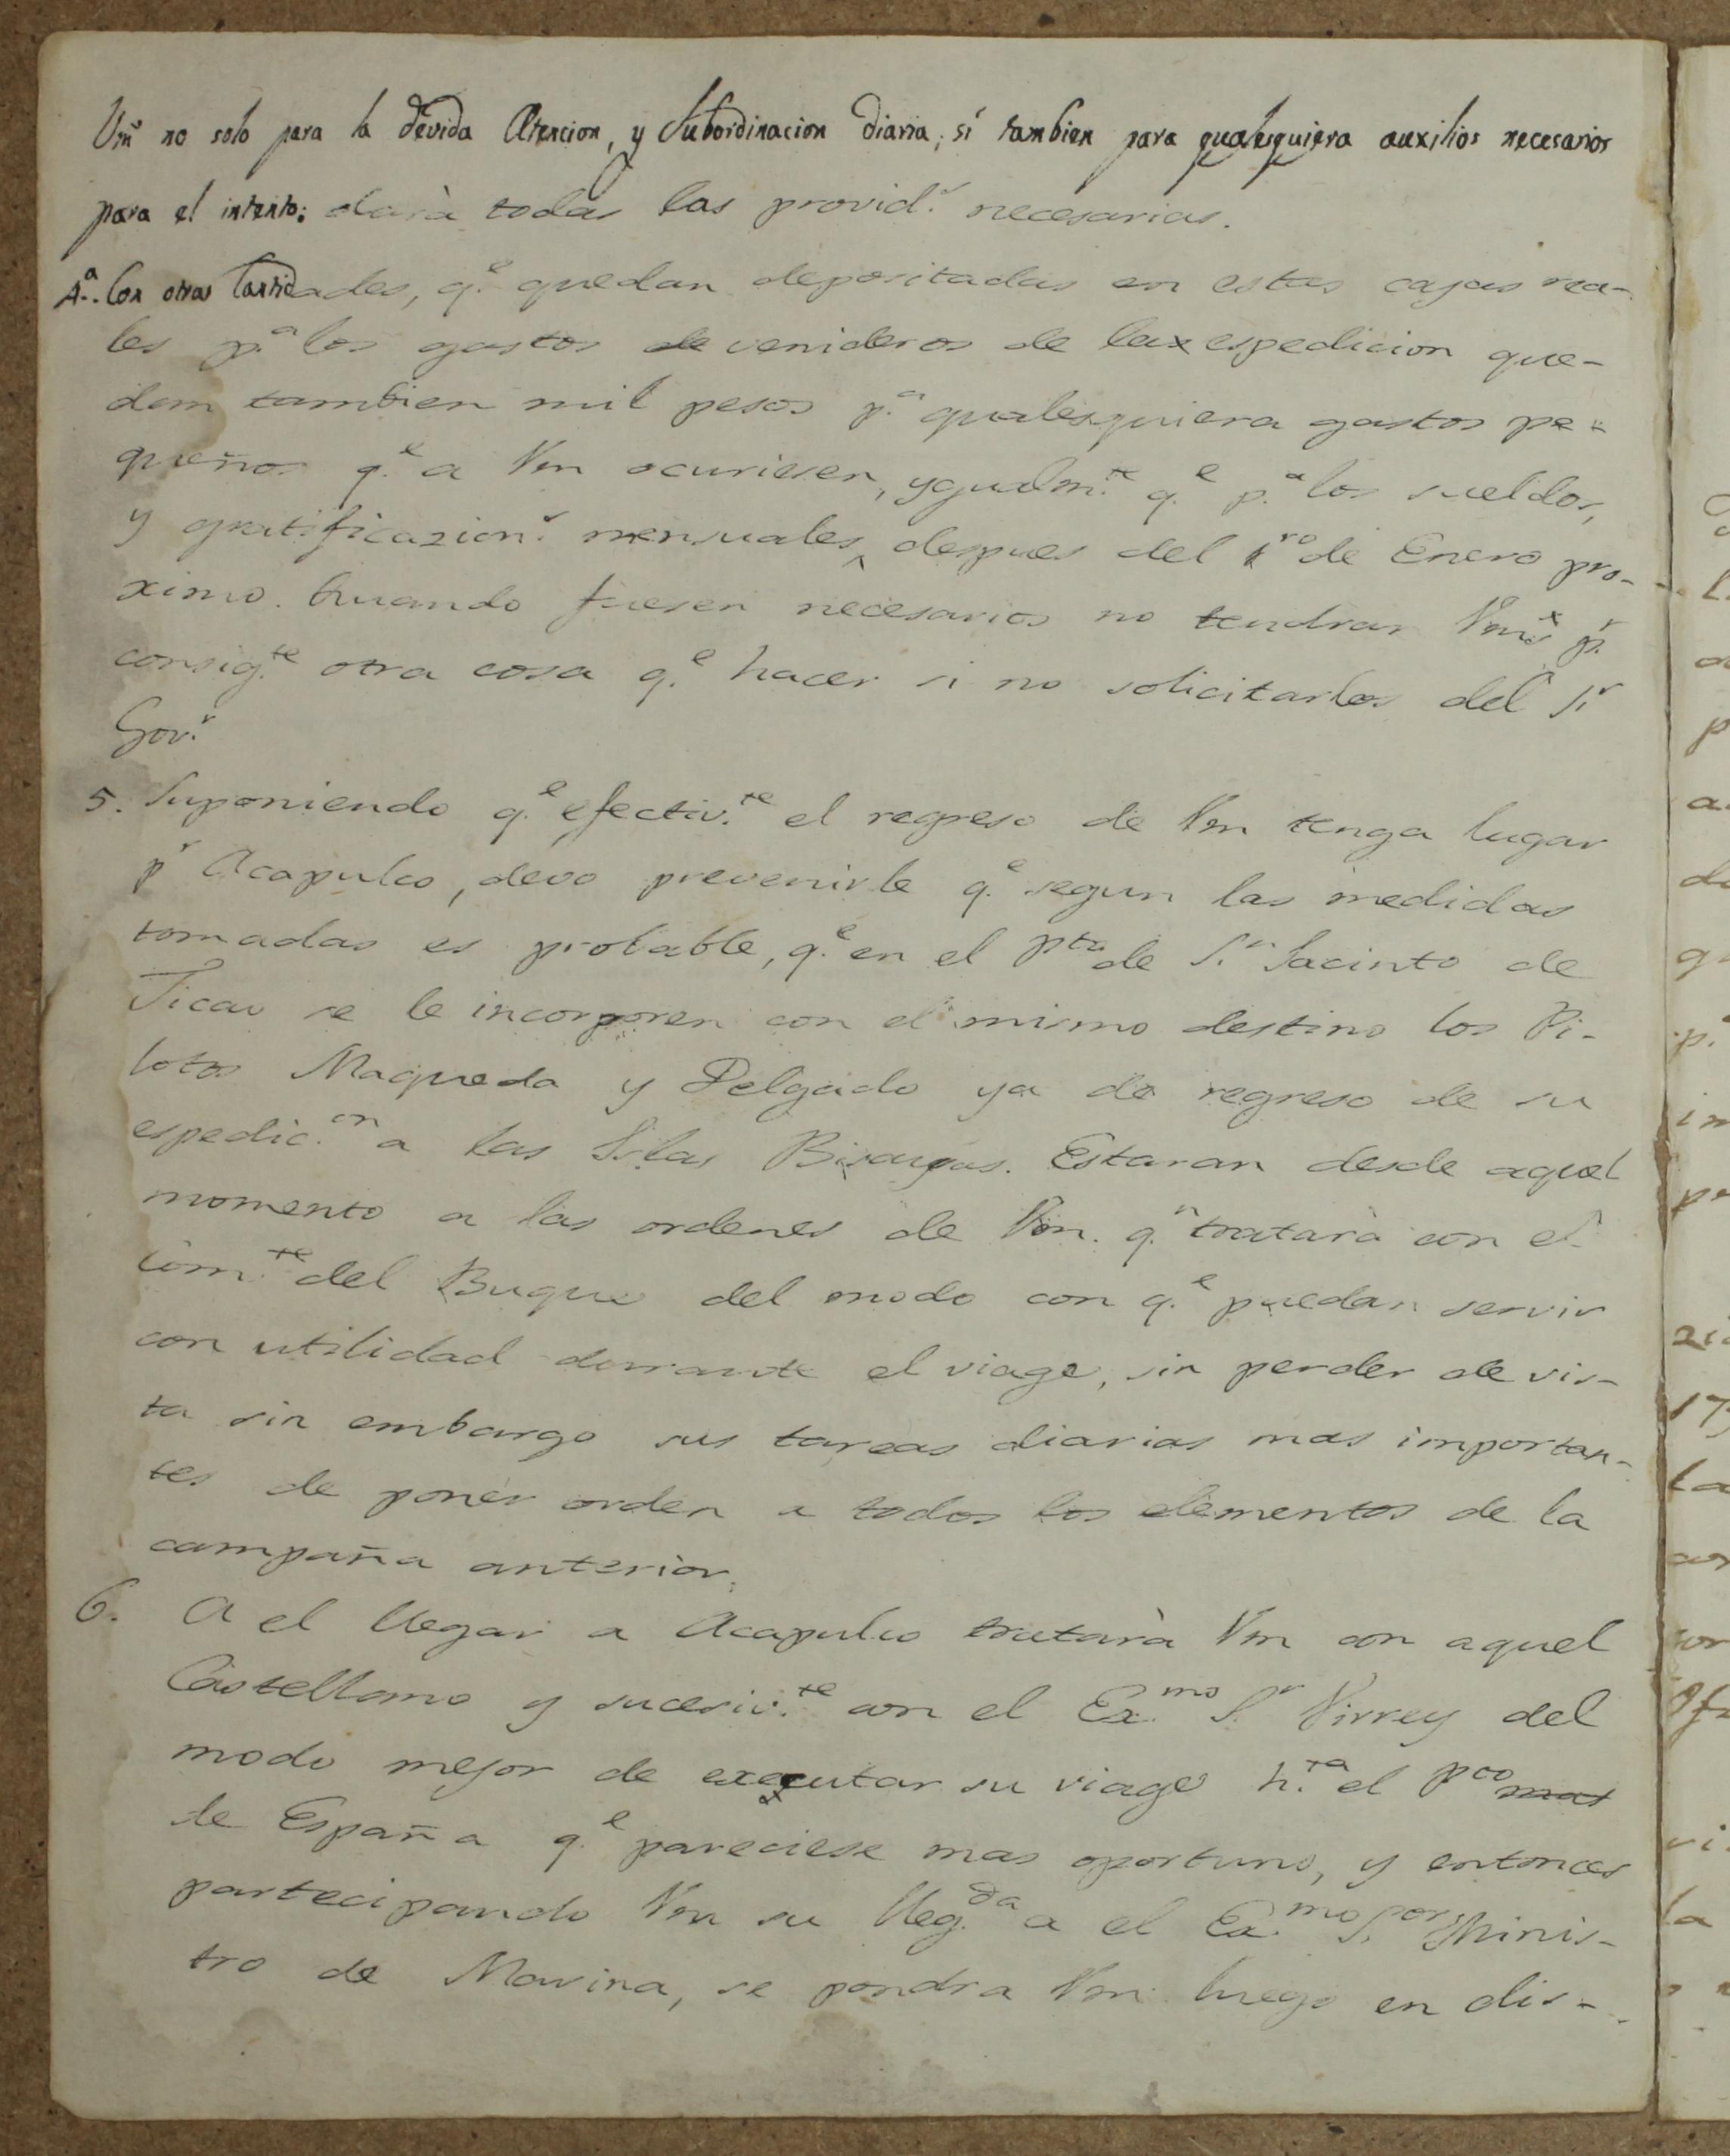 Vm no solo para la devida Atencion, y Subordinacion diaria; si tambien para qualesquiera auxilios necesarios
para el intento; darà todas las provid.s necesarias.
4.a Con otras Cantidades, q.e quedan depositadas en estas cajas rea-
les p.a los gastos de venideros de la expedicion que-
dan tambien mil pesos p.a qualesquiera gastos pe-
queños q.e a Vm ocuriesen, ygualm.te q.e p.a los sueldos,
y gratificazion.s mensuales, despues del 1ro de Enero pro-
ximo. Quando fuesen necesarios no tendran Vms p.r
consig.te otra cosa q.e hacer si no solicitarlos del Sr
Gov.r
5. Suponiendo q.e efectiv.te el regreso de Vm tenga lugar
pr Acapulco, devo prevenirle q.e segun las medidas
tomadas es probable, q.e en el pto de S.n Jacinto de
Ticao se le incorporen con el mismo destino los Pi-
lotos Maqueda y Delgado ya de regreso de su
espedic.on a las Islas Bisayas. Estaran desde aquel
momento a las ordenes de Vm. q.n tratarà con el
com.te del Buque del modo con q.e puedan servir
con utilidad durante el viage, sin perder de vis-
ta sin embargo sus tareas diarias mas importan-
tes de poner orden a todos los elementos de la
campaña anterior.
6. A el llegar a Acapulco tratarà Vm con aquel
Castellano y sucesiv.te con el Ex.mo S.r Virrey del
modo mejor de executar su viage h.ta el pto mas
de España q.e pareciese mas oportuno, y entonces
partecipando Vm su lleg.da a el Ex.mo S.or Minis-
tro de Marina, se pondra Vm luego en dis-